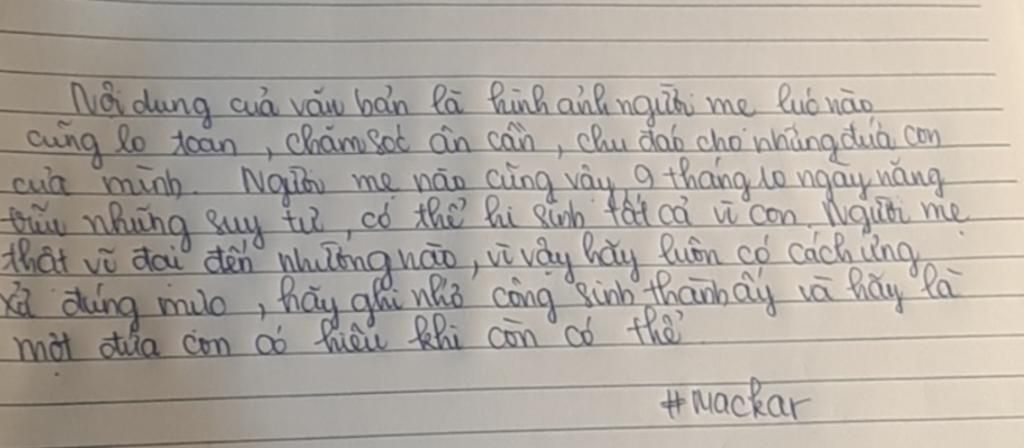 Nội dung của văn bản là hình ảnh người mẹ lúc nào
cũng lo toan, chăm sóc ân cần, chu đáo cho những đứa con
của mình. Người mẹ nào cũng vậy, 9 tháng 10 ngày nặng
trĩu những suy tư, có thể hi sinh tất cả vì con. Người mẹ
thật vĩ đại đến nhường nào, vì vậy hãy luôn có cách ứng
xử đúng mực, hãy ghi nhớ công sinh thành ấy và hãy là
một đứa con có hiếu khi còn có thể
#mackar